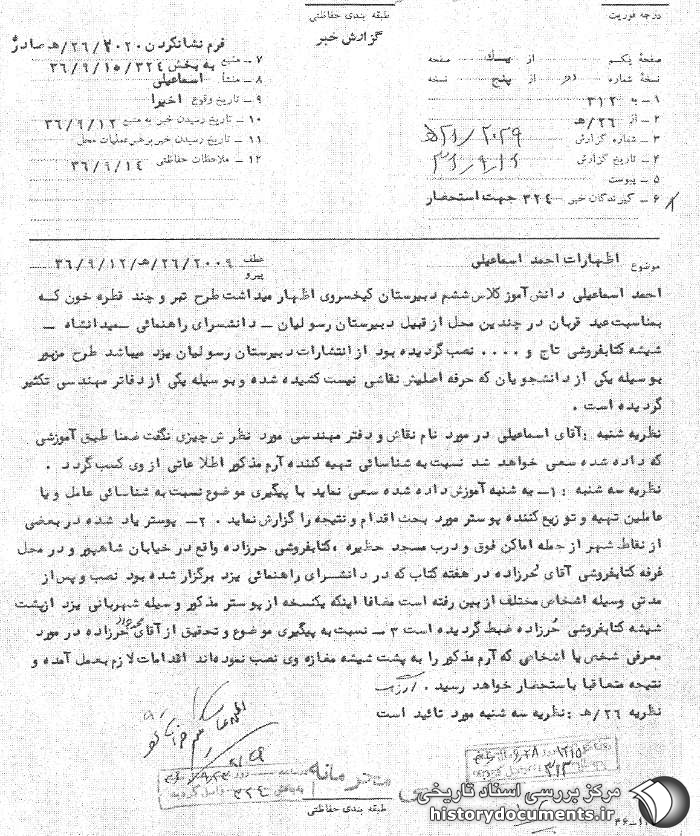 درجه فوریت
طبقه بندی حفاظتی
گزارش خبر
صفحهٔ یکم از یک صفحه
نسخهٔ شماره دو از پنج نسخه
۱ – به ۳۱۲
۲ – از ۲۶/هـ
۳ – شماره گزارش
۴ – تاریخ گزارش
۵ – پیوست
۶ – گیرندگان خبر ۳۲۴ جهت استحضار
فرم نشانکردن ۲۰۲۰/۲۶/هـ صادر
۷ – منبع به بخش ۳۶/۹/۱۵/۳۲۴
۸ – منشأ اسماعیلی
۹ – تاریخ وقوع اخیرا
۱۰ – تاریخ رسیدن خبر به منبع ۳۶/۹/۱۲
۱۱ – تاریخ رسیدن خبر برهبر عملیات محل
۱۲ – ملاحظات حفاظتی ۳۶/۹/۱۴
موضوع اظهارات احمد اسماعیلی
عطف ۲۰۰۹/۲۶/هـ/۳۶/۹/۱۲
پیرو
احمد اسماعیلی دانش آموز کلاس ششم دبیرستان کیخسروی اظهار میداشت طرح تبر و چند قطره خون که
بمناسبت عید قربان در چندین محل از قبیل دبیرستان رسولیان – دانشسرای راهنمائی – میدانشاه –
شیشه کتابفروشی تاج و .... نصب گردیده بود از انتشارات دبیرستان رسولیان یزد میباشد طرح مزبور
بوسیله یکی از دانشجویان که حرفه اصلیش نقاشی نیست کشیده شده و بوسیله یکی از دفاتر مهندسی تکثیر
گردیده است .
نظریه شنبه : آقای اسماعیلی در مورد نام نقاش و دفتر مهندسی مورد نظرش چیزی نگفت ضمنا طبق آموزشی
که داده شده سعی خواهد شد نسبت به شناسائی تهیه کننده آرم مذکور اطلاعاتی از وی کسب گردد .
نظریه سه شنبه : ۱– به شنبه آموزش داده شده سعی نماید با پیگیری موضوع نسبت به شناسائی عامل و یا
عاملین تهیه و توزیع کننده پوستر مورد بحث اقدام و نتیجه را گزارش نماید . ۲– پوستر یاد شده در بعضی
از نقاط شهر از جمله اماکن فوق و درب مسجد حظیره ، کتابفروشی حرزاده واقع در خیابان شاهپور و در محل
غرفه کتابفروشی آقای حرزاده در هفته کتاب که در دانشسرای راهنمائی یزد برگزار شده بود نصب و پس از
مدتی وسیله اشخاص مختلف از بین رفته است مضافا اینکه یکنسخه از پوستر مذکور وسیله شهربانی یزد از پشت
شیشه کتابفروشی حرزاده ضبط گردیده است ۳ – نسبت به پیگیری موضوع و تحقیق از آقای حرزاده در مورد
معرفی شخص یا اشخاصی که آرم مذکور را به پشت شیشه مغازه وی نصب نموده اند اقدامات لازم بعمل آمده و
نتیجه متعاقبا باستحضار خواهد رسید .
نظریه ۲۶/هـ : نظریه سه شنبه مورد تائید است
طبقه بندی حفاظتی
مرکز بررسی اسناد تاریخی
historydocuments.ir